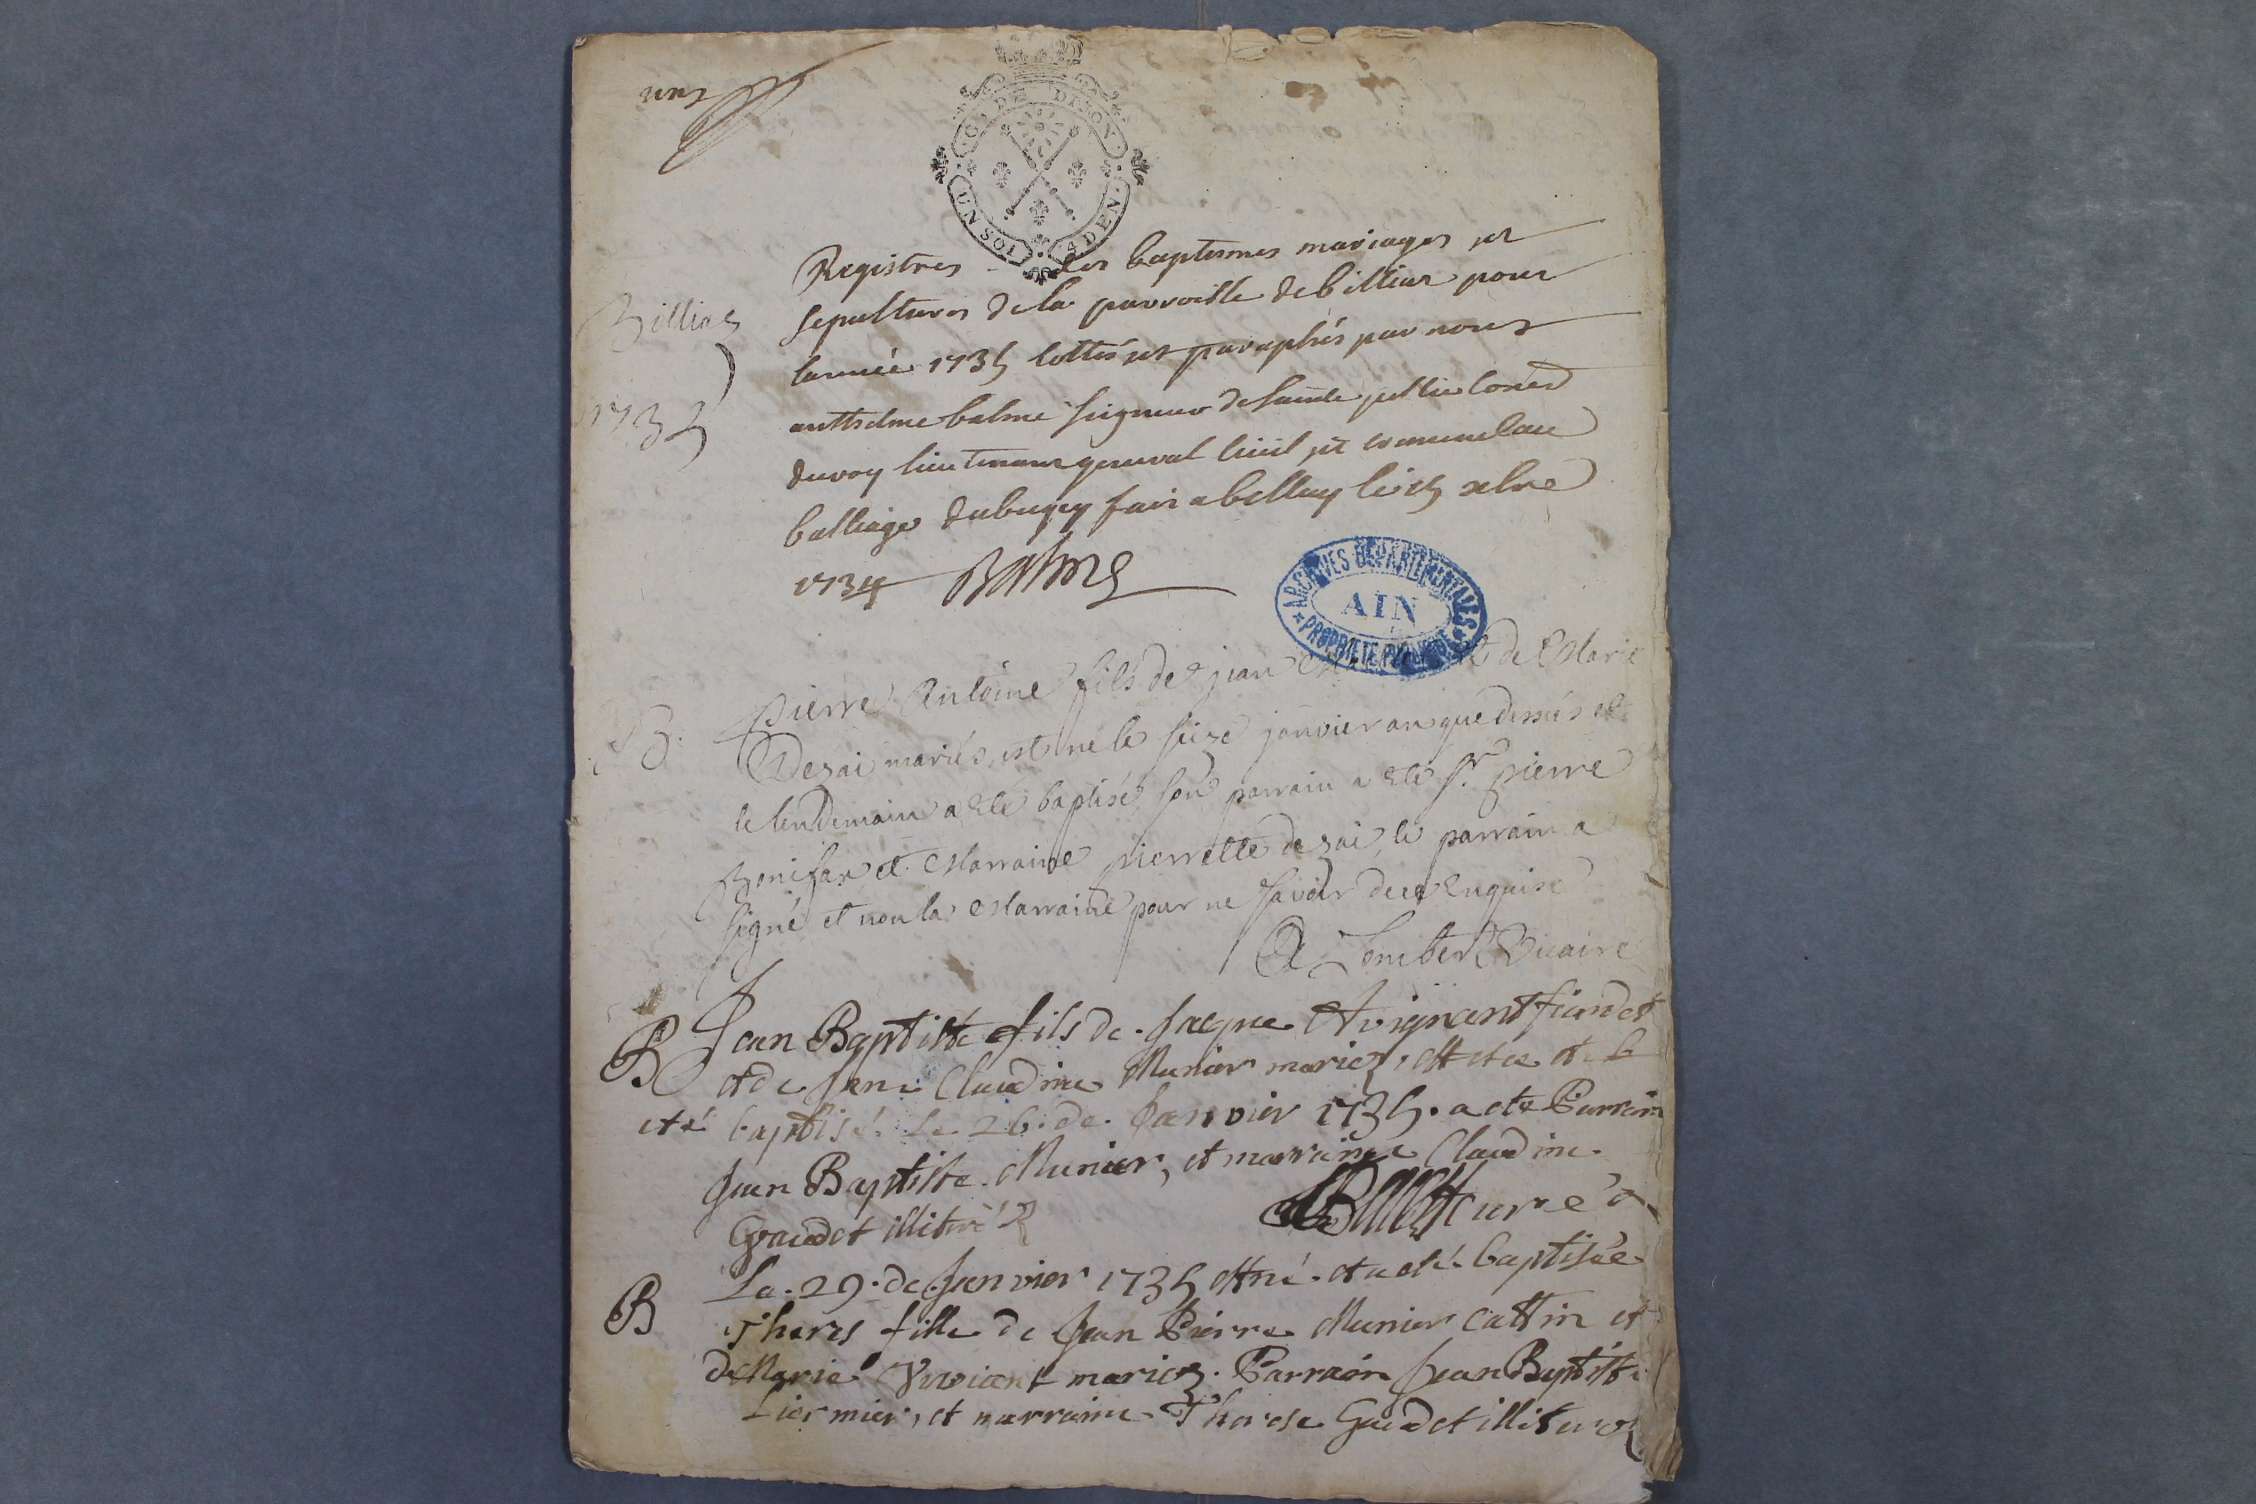 une
G. DE DIJON
UN SOL 4 DEN.
Registres des baptesmes mariages et
sepultures de la parroisse de billiat pour
Billiat
lannée 1735 cottés et paraphés par nous
1735
anthelme balme seigneur de sainte jullie Coner
du roy lieutenant general civil et au
balliage du bugey fait a belley le xbre
1734 Balme
ARCHIVES DEPARTEMENTALES
AIN
PROPRIETE PUBLIQUE
B. Pierre Antoine fils de jean et de Marie
Dezai mariés, est né le seize janvier an que dessus et
le lendemain a ete baptisé son parrain a ete Sr. pierre
Bonifax et Marraine pierrette dezai, le parrain a
signé et non la Marraine pour ne savoir de ce enquise
Vicaire
B Jean Baptiste fils de Jacque Avignant
et de Jane Claudine Munier mariez, est
eté baptisé Le 26. de Janvier 1735. a ete Parrain
Jean Baptiste Munier, et marraine Claudine
Gaudet illiteré
curé
B Le. 29. de Janvier 1735 est né. et a eté baptisée
Theres fille de Jean Pierre Munier Cattin et
de Marie Viviant mariez. Parrain Jean Baptiste
Liermier, et marraine Therese Gaudet illiterez